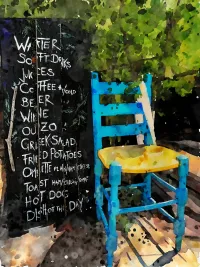 WATER
SOFT DRINKS
JUICES
COFFEE
BEER
WINE
OUZO
GREEK SALAD
FRIED POTATOES
OMLETTE
TOAST
HOT DOG
DISH OF THE DAY